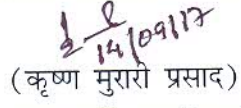 14/09/17
(कृष्ण मुरारी प्रसाद)